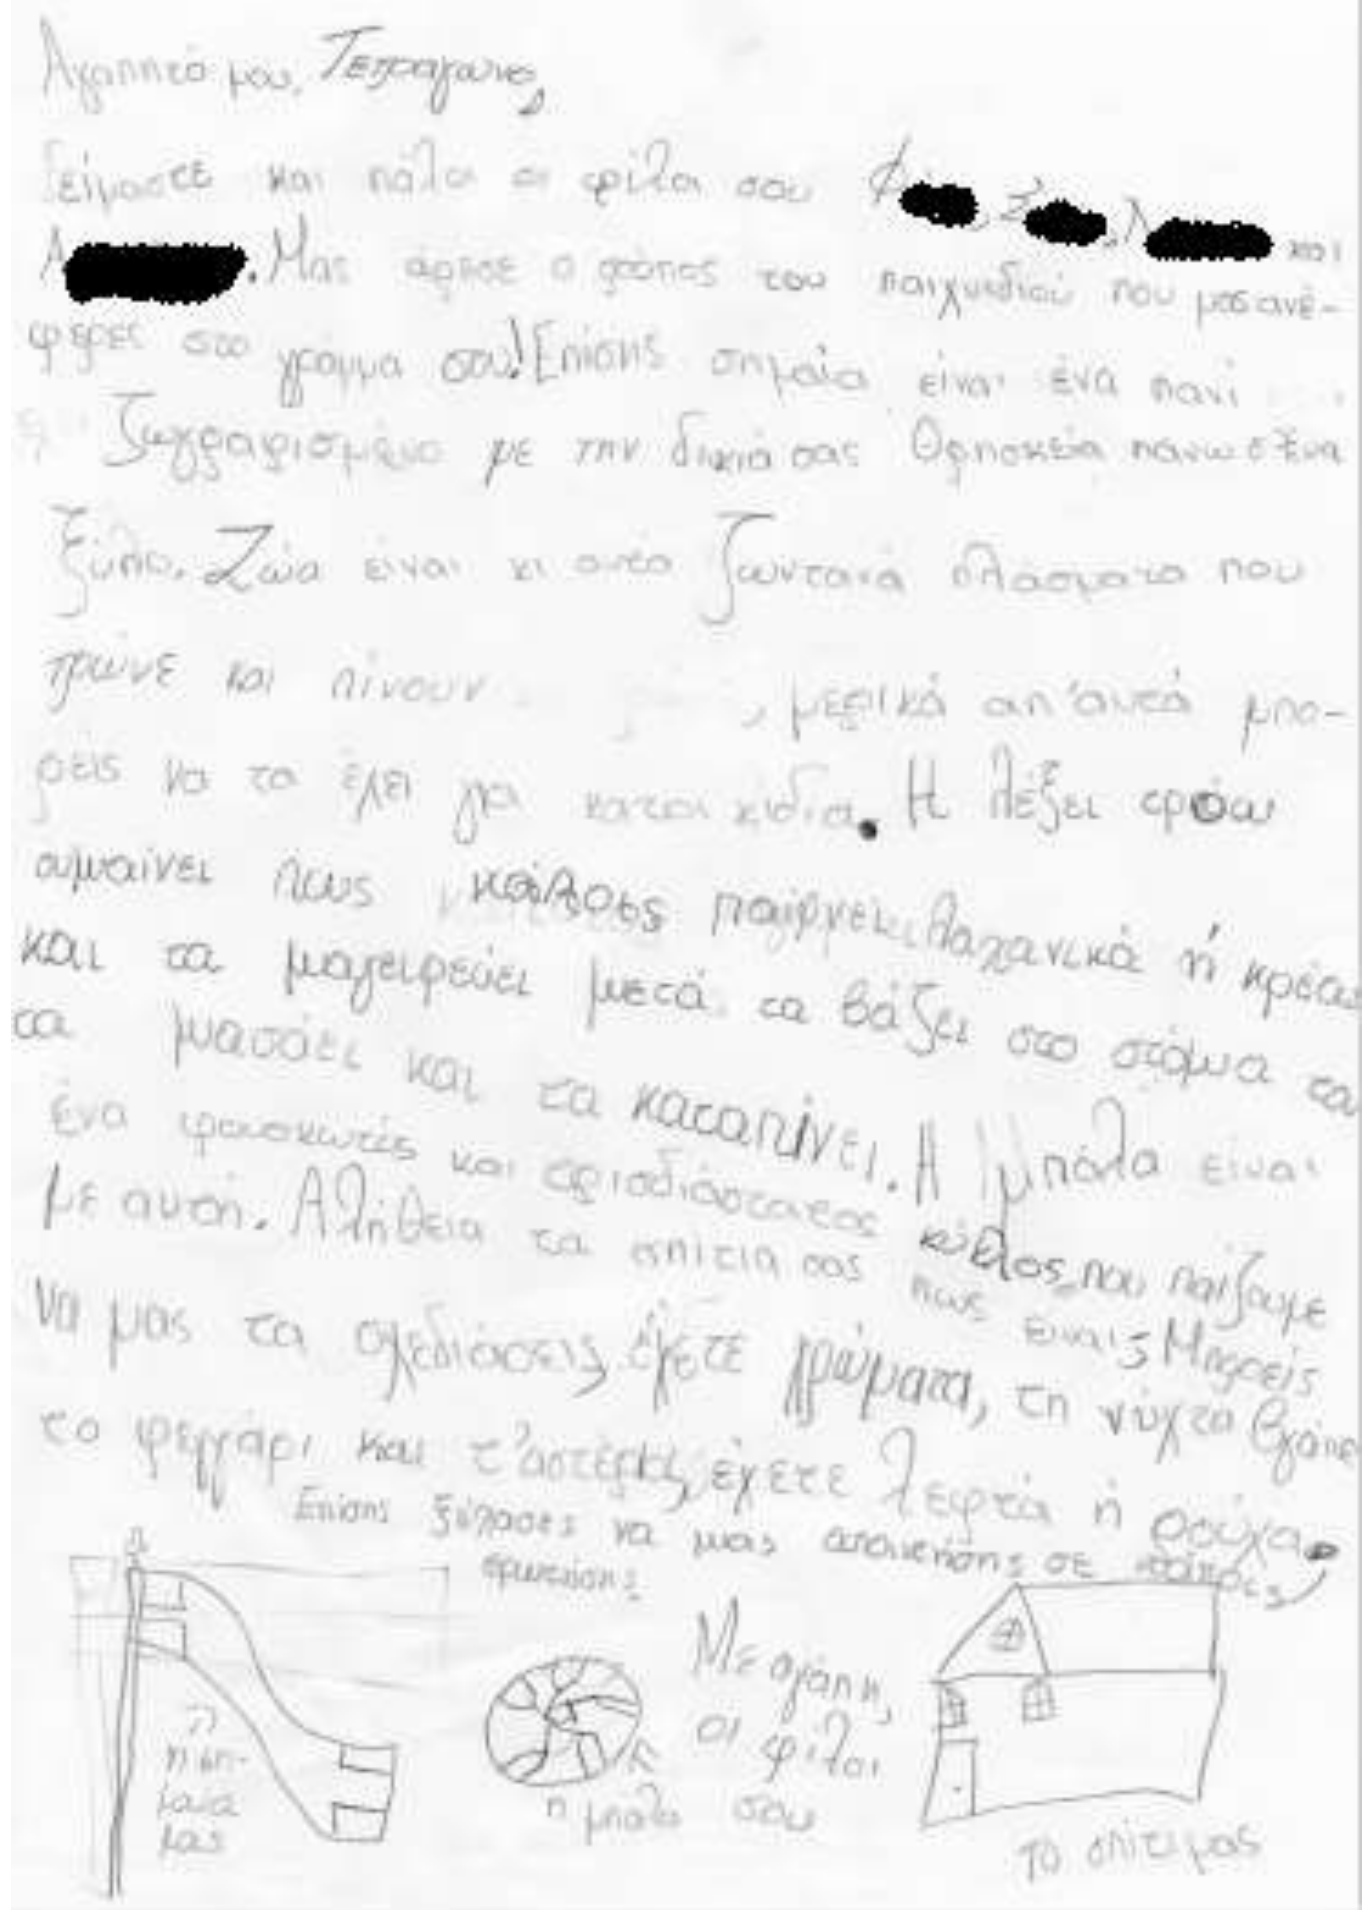 Αγαπητό μου, Τετράγωνο,
είμαστε και πάλι οι φίλοι σου Φ , Ζ , Λ και
Α . Μας άρεσε ο τρόπος του παιχνιδιού που μας ανέ-
φερες στο γράμμα σου! Επίσης σημαία είναι ένα πανί
ζωγραφισμένο με την δικιά σας θρησκεία πάνω σ'ένα
ξύλο. Ζώα είναι κι αυτά ζωντανά πλάσματα που
τρώνε και πίνουν , μερικά απ'αυτά μπο-
ρείς να τα έχει για κατοικίδια. Η λέξει τρώω
σημαίνει πως κάποιος παίρνει λαχανικά ή κρέας
και τα μαγειρεύει μετά τα βάζει στο στόμα του
τα μασάει και τα καταπίνει. Η μπάλα είναι
ένα φουσκωτός και τρισδιάστατος κύκλος που παίζουμε
με αυτή. Αλήθεια τα σπίτια σας πως είναι; Μπορείς
να μας τα σχεδιάσεις, έχετε χρώματα, τη νύχτα βγαίνει
το φεγγάρι και τ'αστέρια, έχετε λεφτά ή ρούχα
Επίσης ξέχασες να μας απαντήσης σε κάποιες
ερωτήσης
Με αγάπη,
οι φίλοι
σου
η ση-
μαία
μας
η μπάλα
το σπίτι μας